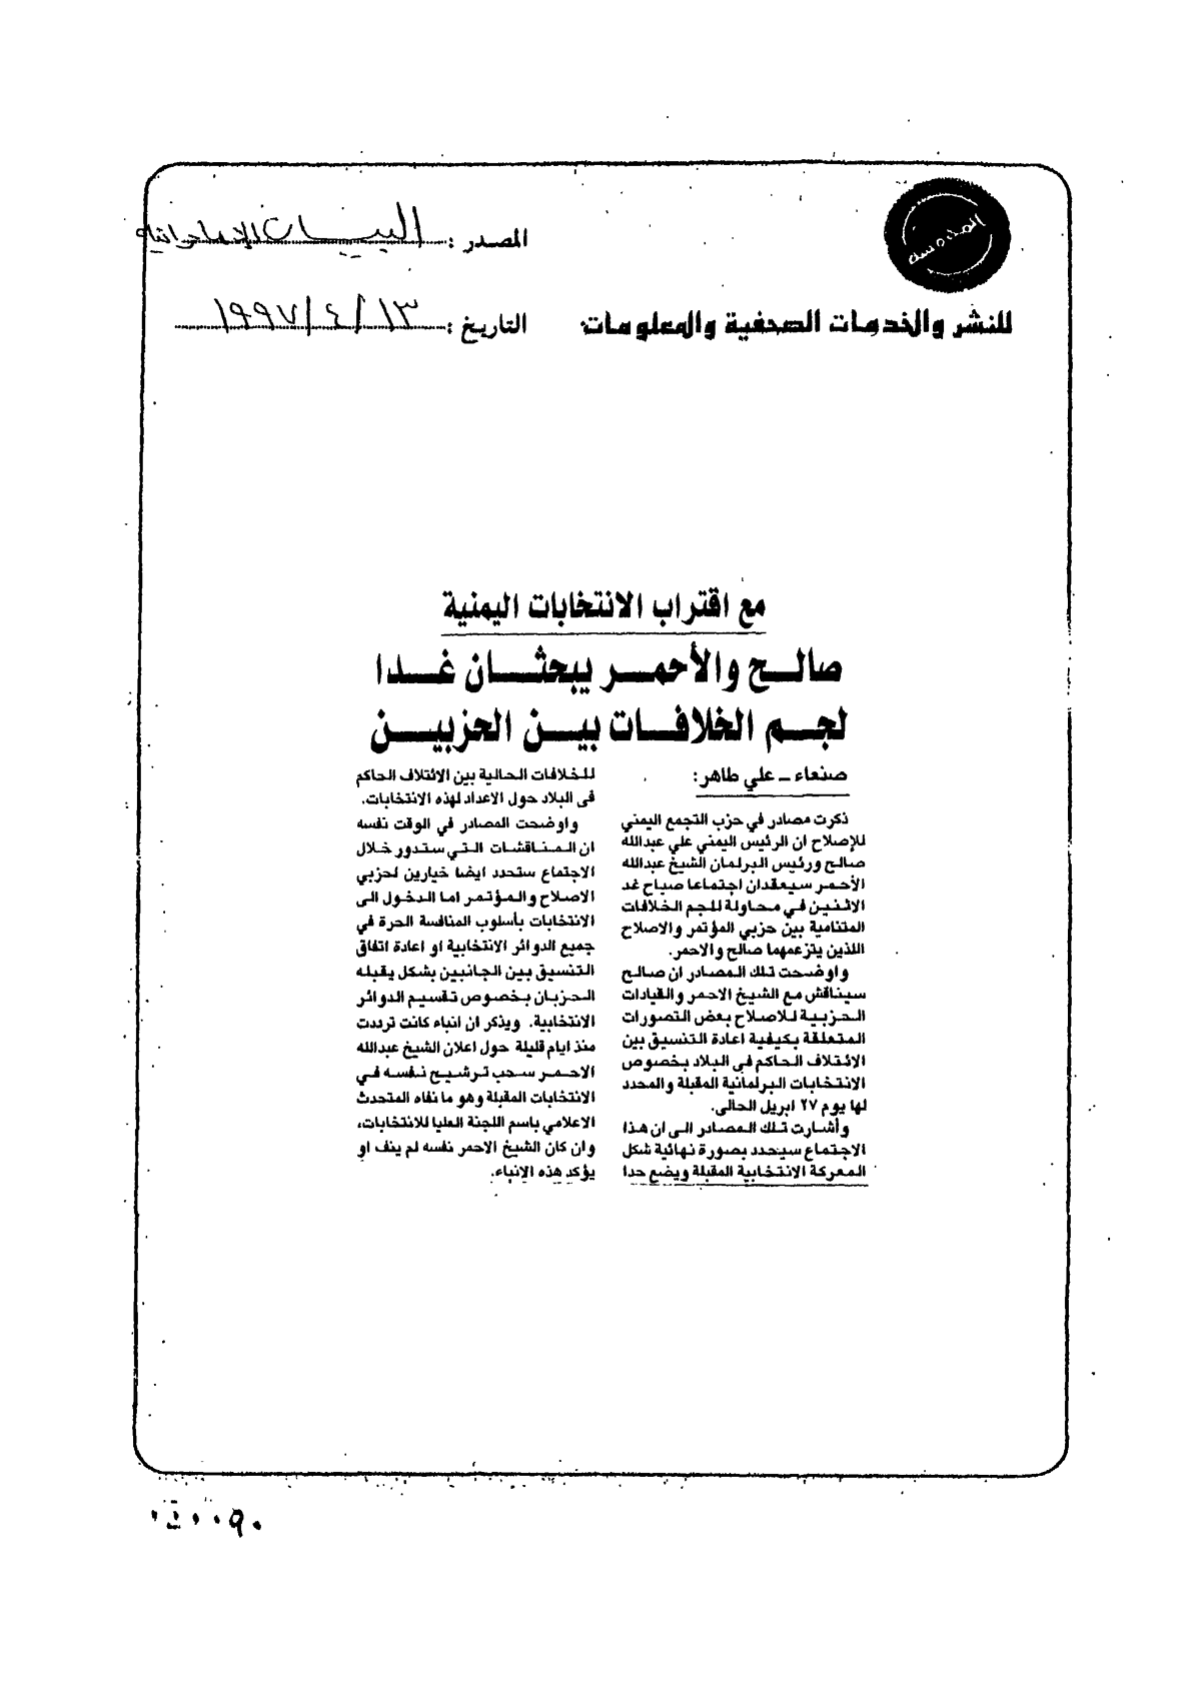 المصدر : البيان الإماراتية
للنشر والخدمات الصحفية والمعلومات
التاريخ : ١٣/٤/١٩٩٧
مع اقتراب الانتخابات اليمنية
صالح والأحمر يبحثان غدا
لجم الخلافات بين الحزبين
صنعاء - علي طاهر:
ذكرت مصادر في حزب التجمع اليمني
للإصلاح ان الرئيس اليمني علي عبدالله
صالح ورئيس البرلمان الشيخ عبدالله
الأحمر سيعقدان اجتماعا صباح غد
الاثنين في محاولة للجم الخلافات
المتنامية بين حزبي المؤتمر والاصلاح
اللذين يتزعمهما صالح والاحمر.
واوضحت تلك المصادر ان صالح
سيناقش مع الشيخ الاحمر والقيادات
الحزبية للاصلاح بعض التصورات
المتعلقة بكيفية اعادة التنسيق بين
الائتلاف الحاكم في البلاد بخصوص
الانتخابات البرلمانية المقبلة والمحدد
لها يوم ٢٧ ابريل الحالى.
وأشارت تلك المصادر الى ان هذا
الاجتماع سيحدد بصورة نهائية شكل
المعركة الانتخابية المقبلة ويضع حدا
للخلافات الحالية بين الائتلاف الحاكم
فى البلاد حول الاعداد لهذه الانتخابات.
واوضحت المصادر في الوقت نفسه
ان المناقشات التي ستدور خلال
الاجتماع ستحدد ايضا خيارين لحزبي
الاصلاح والمؤتمر اما الدخول الى
الانتخابات بأسلوب المنافسة الحرة في
جميع الدوائر الانتخابية او اعادة اتفاق
التنسيق بين الجانبين بشكل يقبله
الحزبان بخصوص تقسيم الدوائر
الانتخابية. ويذكر ان انباء كانت ترددت
منذ ايام قليلة حول اعلان الشيخ عبدالله
الاحمر سحب ترشيح نفسه في
الانتخابات المقبلة وهو ما نفاه المتحدث
الاعلامي باسم اللجنة العليا للانتخابات،
وان كان الشيخ الاحمر نفسه لم ينف او
يؤكد هذه الانباء.